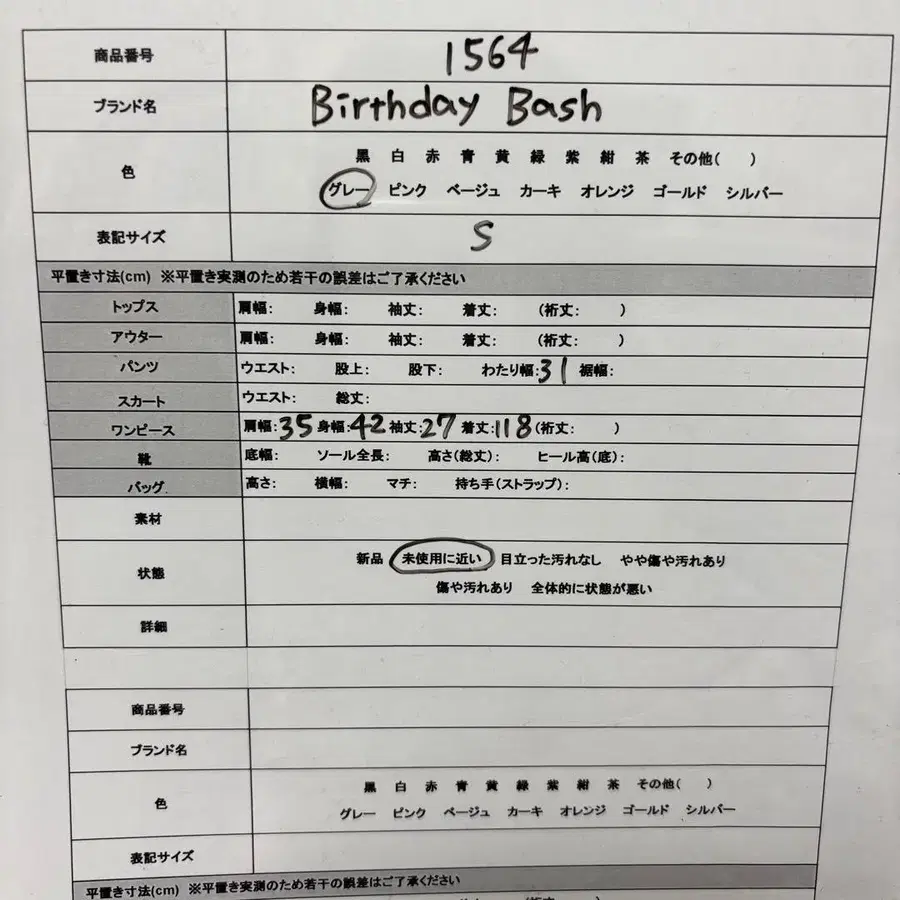 商品番号 1564
ブランド名 Birthday Bash
色 黒 白 赤 青 黄 緑 紫 紺 茶 その他( )
グレー ピンク ベージュ カーキ オレンジ ゴールド シルバー
表記サイズ S
平置き寸法(cm) ※平置き実測のため若干の誤差はご了承ください
トップス 肩幅: 身幅: 袖丈: 着丈: (裄丈: )
アウター 肩幅: 身幅: 袖丈: 着丈: (裄丈: )
パンツ ウエスト: 股上: 股下: わたり幅:31 裾幅:
スカート ウエスト: 総丈:
ワンピース 肩幅:35 身幅:42 袖丈:27 着丈:118 (裄丈: )
靴 底幅: ソール全長: 高さ(総丈): ヒール高(底):
バッグ 高さ: 横幅: マチ: 持ち手(ストラップ):
素材
状態 新品 未使用に近い 目立った汚れなし やや傷や汚れあり
傷や汚れあり 全体的に状態が悪い
詳細
商品番号
ブランド名
色 黒 白 赤 青 黄 緑 紫 紺 茶 その他( )
グレー ピンク ベージュ カーキ オレンジ ゴールド シルバー
表記サイズ
平置き寸法(cm) ※平置き実測のため若干の誤差はご了承ください